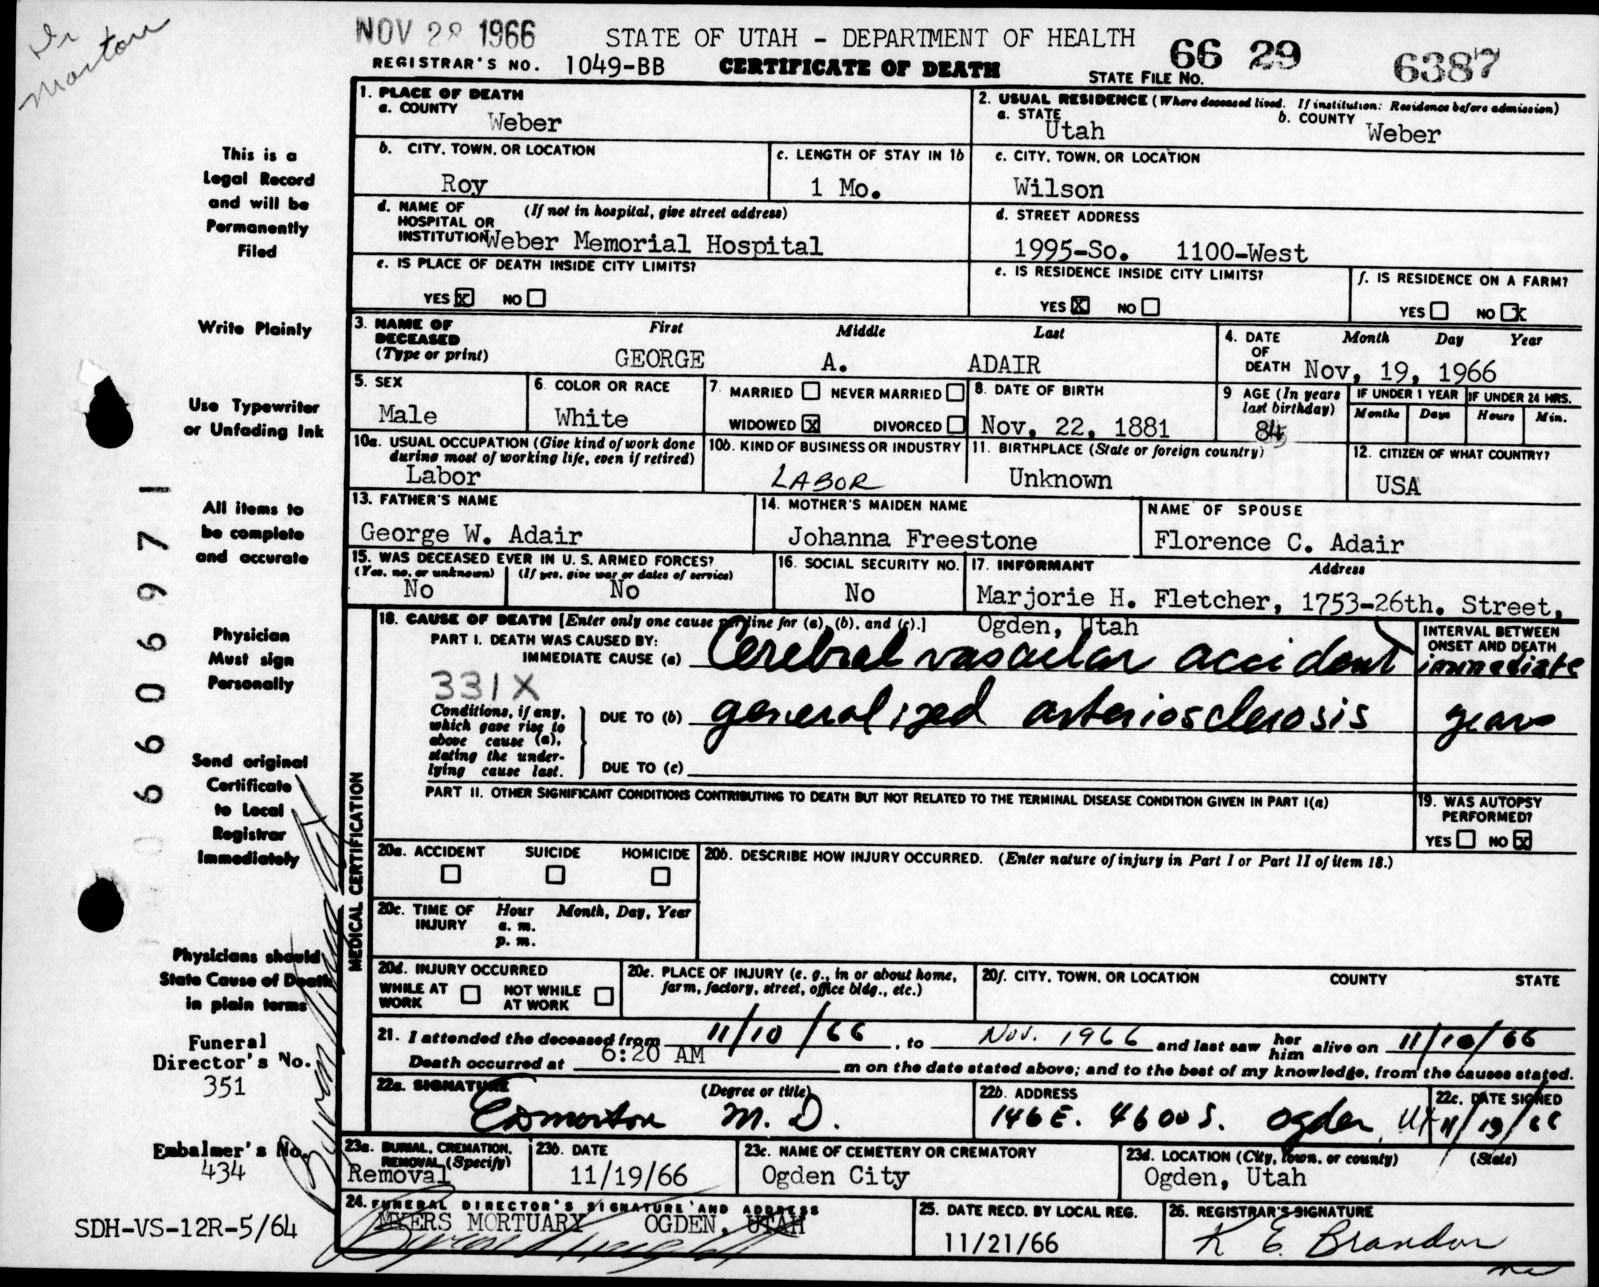 Dr
Morton
NOV 28 1966
STATE OF UTAH - DEPARTMENT OF HEALTH
66 29
6387
REGISTRAR'S NO. 1049-BB
CERTIFICATE OF DEATH
STATE FILE NO.
This is a
Legal Record
and will be
Permanently
Filed
Write Plainly
Use Typewriter
or Unfading Ink
All items to
be complete
and accurate
Physician
Must sign
Personally
Send original
Certificate
to Local
Registrar
Immediately
Physicians should
State Cause of Death
in plain terms
Funeral
Director's No.
351
Embalmer's No.
434
SDH-VS-12R-5/64
1. PLACE OF DEATH
a. COUNTY
Weber
2. USUAL RESIDENCE (Where deceased lived. If institution: Residence before admission)
a. STATE
Utah
b. COUNTY
Weber
b. CITY, TOWN, OR LOCATION
Roy
c. LENGTH OF STAY IN 1b
1 Mo.
c. CITY, TOWN, OR LOCATION
Wilson
d. NAME OF HOSPITAL OR INSTITUTION (If not in hospital, give street address)
Weber Memorial Hospital
d. STREET ADDRESS
1995-So. 1100-West
e. IS PLACE OF DEATH INSIDE CITY LIMITS?
YES X NO
e. IS RESIDENCE INSIDE CITY LIMITS?
YES X NO
f. IS RESIDENCE ON A FARM?
YES NO X
3. NAME OF DECEASED (Type or print)
First Middle Last
GEORGE A. ADAIR
4. DATE OF DEATH
Month Day Year
Nov. 19, 1966
5. SEX
Male
6. COLOR OR RACE
White
7. MARRIED NEVER MARRIED
WIDOWED X DIVORCED
8. DATE OF BIRTH
Nov. 22, 1881
9 AGE (In years last birthday)
84
IF UNDER 1 YEAR IF UNDER 24 HRS.
Months Days Hours Min.
10a. USUAL OCCUPATION (Give kind of work done during most of working life, even if retired)
Labor
10b. KIND OF BUSINESS OR INDUSTRY
LABOR
11. BIRTHPLACE (State or foreign country)
Unknown
12. CITIZEN OF WHAT COUNTRY?
USA
13. FATHER'S NAME
George W. Adair
14. MOTHER'S MAIDEN NAME
Johanna Freestone
NAME OF SPOUSE
Florence C. Adair
15. WAS DECEASED EVER IN U. S. ARMED FORCES?
(Yes, no, or unknown) (If yes, give war or dates of service)
No No
16. SOCIAL SECURITY NO.
No
17. INFORMANT Address
Marjorie H. Fletcher, 1753-26th. Street,
Ogden, Utah
MEDICAL CERTIFICATION
18. CAUSE OF DEATH [Enter only one cause per line for (a), (b), and (c).]
PART I. DEATH WAS CAUSED BY:
IMMEDIATE CAUSE (a) Cerebral vascular accident
INTERVAL BETWEEN ONSET AND DEATH
immediate
331X
Conditions, if any, which gave rise to above cause (a), stating the underlying cause last.
DUE TO (b) generalized arteriosclerosis
years
DUE TO (c)
PART II. OTHER SIGNIFICANT CONDITIONS CONTRIBUTING TO DEATH BUT NOT RELATED TO THE TERMINAL DISEASE CONDITION GIVEN IN PART I(a)
19. WAS AUTOPSY PERFORMED?
YES NO X
20a. ACCIDENT SUICIDE HOMICIDE
20b. DESCRIBE HOW INJURY OCCURRED. (Enter nature of injury in Part I or Part II of item 18.)
20c. TIME OF INJURY Hour Month, Day, Year
a. m.
p. m.
20d. INJURY OCCURRED
WHILE AT WORK NOT WHILE AT WORK
20e. PLACE OF INJURY (e. g., in or about home, farm, factory, street, office bldg., etc.)
20f. CITY, TOWN, OR LOCATION COUNTY STATE
21. I attended the deceased from 11/10/66, to Nov. 1966 and last saw her him alive on 11/10/66
Death occurred at 6:20 AM m on the date stated above; and to the best of my knowledge, from the causes stated.
22a. SIGNATURE (Degree or title)
E D Morton M. D.
22b. ADDRESS
146 E. 4600 S. Ogden, Ut
22c. DATE SIGNED
11/19/66
23a. BURIAL, CREMATION, REMOVAL (Specify)
Removal
23b. DATE
11/19/66
23c. NAME OF CEMETERY OR CREMATORY
Ogden City
23d. LOCATION (City, town, or county) (State)
Ogden, Utah
24. FUNERAL DIRECTOR'S SIGNATURE AND ADDRESS
MYERS MORTUARY OGDEN, UTAH
25. DATE RECD. BY LOCAL REG.
11/21/66
26. REGISTRAR'S SIGNATURE
K E Brandon